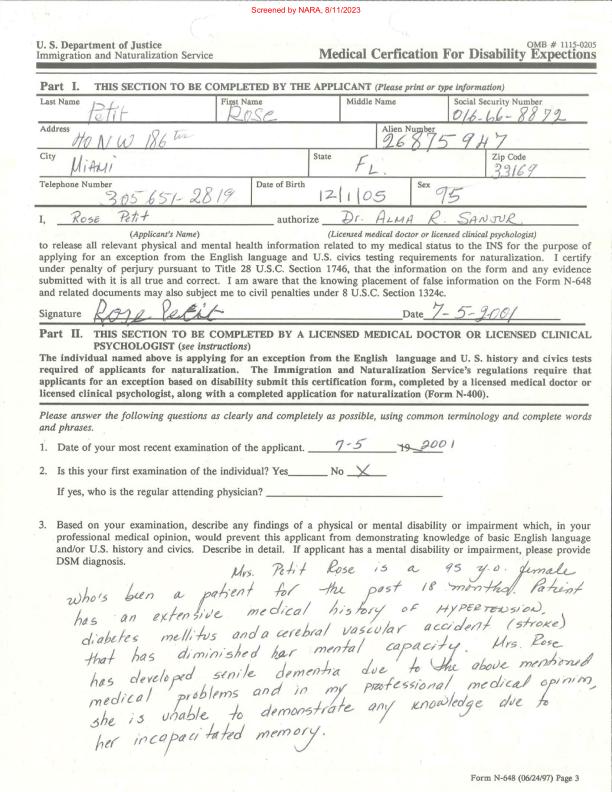 Screened by NARA, 8/11/2023
OMB # 1115-0205
U. S. Department of Justice
Immigration and Naturalization Service
Medical Cerfication For Disability Expections
Part I. THIS SECTION TO BE COMPLETED BY THE APPLICANT (Please print or type information)
Last Name First Name Middle Name Social Security Number
Petit Rose 016-66-8872
Address Alien Number
NW 186 ter 26875947
City State Zip Code
MIAMI FL. 33169
Telephone Number Date of Birth Sex
305 651-2819 12/1/05 95
I, Rose Petit authorize Dr. ALMA R. SANJUR
(Applicant's Name) (Licensed medical doctor or licensed clinical psychologist)
to release all relevant physical and mental health information related to my medical status to the INS for the purpose of
applying for an exception from the English language and U.S. civics testing requirements for naturalization. I certify
under penalty of perjury pursuant to Title 28 U.S.C. Section 1746, that the information on the form and any evidence
submitted with it is all true and correct. I am aware that the knowing placement of false information on the Form N-648
and related documents may also subject me to civil penalties under 8 U.S.C. Section 1324c.
Signature Rose Petit Date 7-5-2001
Part II. THIS SECTION TO BE COMPLETED BY A LICENSED MEDICAL DOCTOR OR LICENSED CLINICAL
PSYCHOLOGIST (see instructions)
The individual named above is applying for an exception from the English language and U. S. history and civics tests
required of applicants for naturalization. The Immigration and Naturalization Service's regulations require that
applicants for an exception based on disability submit this certification form, completed by a licensed medical doctor or
licensed clinical psychologist, along with a completed application for naturalization (Form N-400).
Please answer the following questions as clearly and completely as possible, using common terminology and complete words
and phrases.
1. Date of your most recent examination of the applicant. 7-5 19 2001
2. Is this your first examination of the individual? Yes No X
If yes, who is the regular attending physician?
3. Based on your examination, describe any findings of a physical or mental disability or impairment which, in your
professional medical opinion, would prevent this applicant from demonstrating knowledge of basic English language
and/or U.S. history and civics. Describe in detail. If applicant has a mental disability or impairment, please provide
DSM diagnosis.
Mrs. Petit Rose is a 95 y.o. female
who's been a patient for the past 18 months. Patient
has an extensive medical history of HYPERTENSION,
diabetes mellitus and a cerebral vascular accident (stroke)
that has diminished her mental capacity. Mrs. Rose
has developed senile dementia due to the above mentioned
medical problems and in my professional medical opinion,
she is unable to demonstrate any knowledge due to
her incapacitated memory.
Form N-648 (06/24/97) Page 3